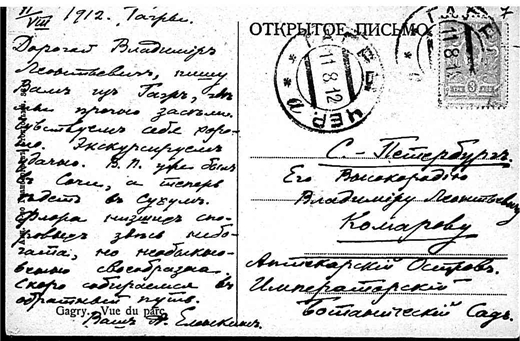 11/VIII 1912. Гагры.
Дорогой Владимiръ
Леонтьевичъ, пишу
Вамъ изъ Гагръ, гдѣ
мы прочно засѣли.
Чувствуемъ себя хоро-
шо. Экскурсируемъ
удачно. В. П. уже былъ
въ Сочи, а теперь
ѣдетъ въ Сухумъ.
Флора низшихъ спо-
ровыхъ здѣсь небо-
гата, но необыкно-
венно своеобразна.
Скоро собираемся въ
обратный путь.
Вашъ А. Еленкинъ.
Gagry. Vue du parc.
ОТКРЫТОЕ ПИСЬМО.
11 8 12
11.8.12
3
С.-Петербургъ.
Его Высокородiю
Владимiру Леонтьевичу
Комарову
Аптекарскiй Островъ.
Императорскiй
Ботаническiй Садъ.